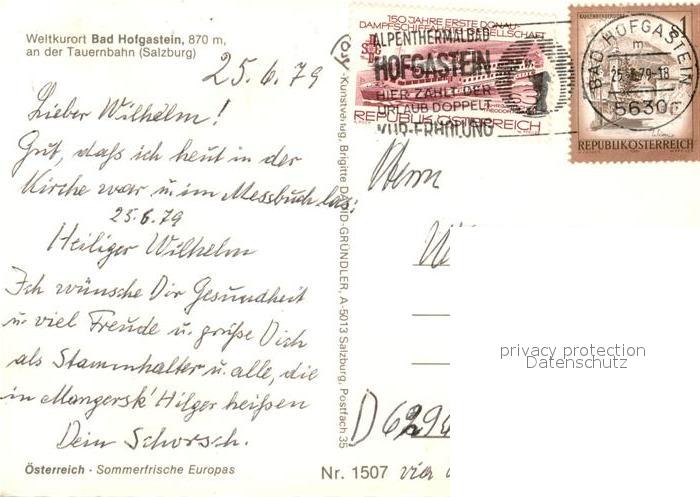 Weltkurort Bad Hofgastein, 870 m,
an der Tauernbahn (Salzburg)
25.6.79
Lieber Wilhelm!
Gut, daß ich heut in der
Kirche war u. im Messbuch las:
25.6.79
Heiliger Wilhelm
Ich wünsche Dir Gesundheit
u. viel Freude u. grüße Dich
als Stammhalter u. alle, die
in Mangersk' Hilger heißen
Dein Schorsch.
Österreich - Sommerfrische Europas
Kunstverlag, Brigitte DAVID-GRÜNDLER, A-5013 Salzburg, Postfach 35
150 JAHRE ERSTE DONAU-
DAMPFSCHIFFFAHRTS-GESELLSCHAFT
S3
REPUBLIK ÖSTERREICH
ALPENTHERMALBAD
HOFGASTEIN
HIER ZÄHLT DER
URLAUB DOPPELT
KUR-ERHOLUNG
S1
REPUBLIK ÖSTERREICH
BAD HOFGASTEIN
m
25.6.79-18
5630
Herrn
D 6294
Nr. 1507
privacy protection
Datenschutz